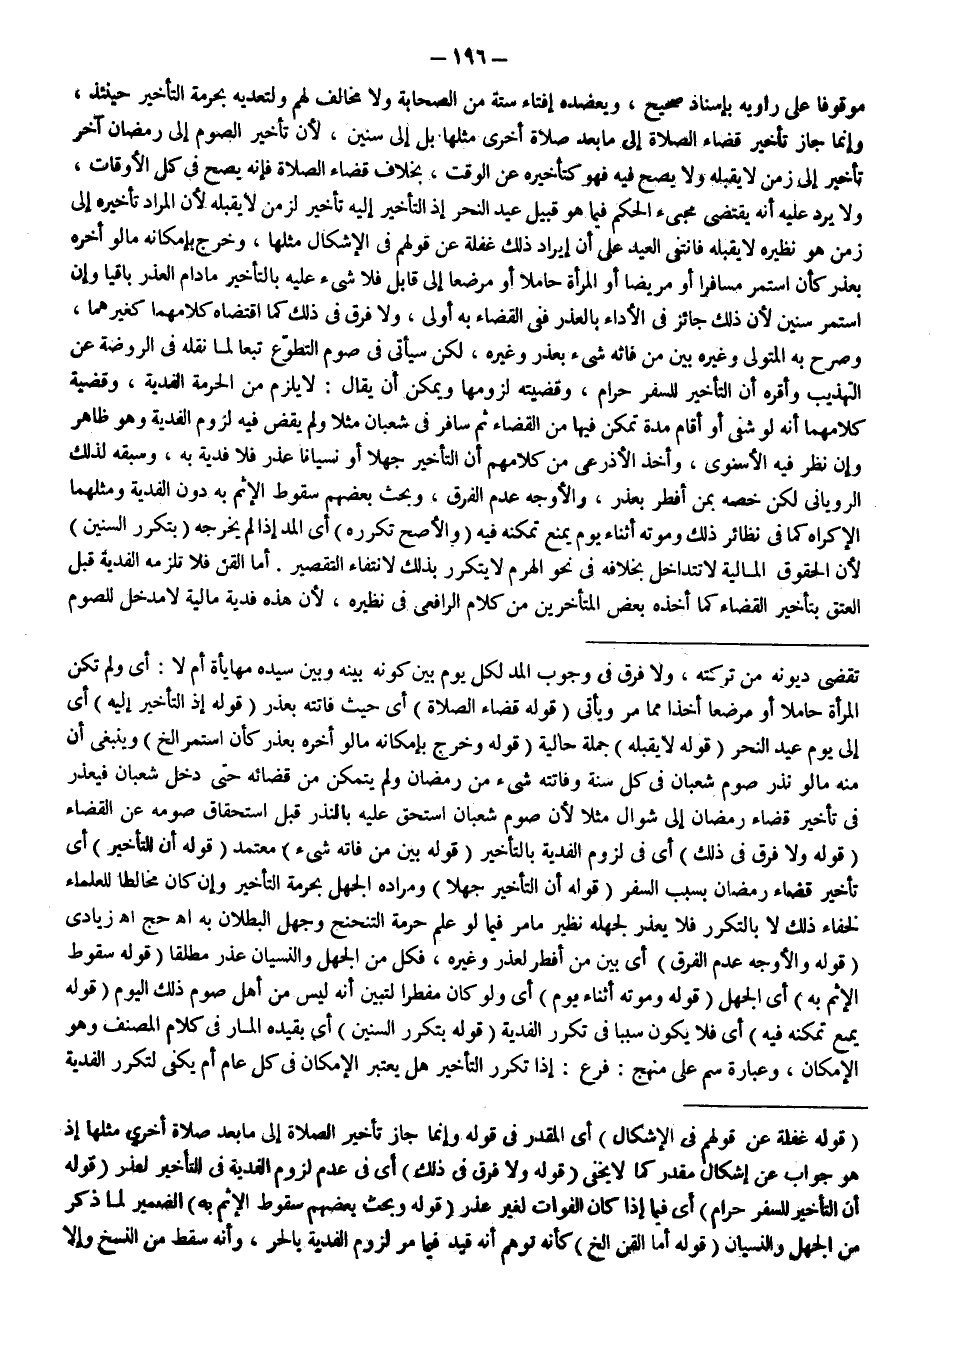 — ١٩٦ —
موقوفا على راويه بإسناد صحيح ، ويعضده إفتاء ستة من الصحابة ولا مخالف لهم ولتعديه بحرمة التأخير حينئذ ،
وإنما جاز تأخير قضاء الصلاة إلى مابعد صلاة أخرى مثلها بل إلى سنين ، لأن تأخير الصوم إلى رمضان آخر
تأخير إلى زمن لايقبله ولا يصح فيه فهو كتأخيره عن الوقت ، بخلاف قضاء الصلاة فإنه يصح فى كل الأوقات ،
ولا يرد عليه أنه يقتضى مجىء الحكم فيما هو قبيل عيد النحر إذ التأخير إليه تأخير لزمن لايقبله لأن المراد تأخيره إلى
زمن هو نظيره لايقبله فانتفى العيد على أن إيراد ذلك غفلة عن قولهم فى الإشكال مثلها ، وخرج بإمكانه مالو أخره
بعذر كأن استمر مسافرا أو مريضا أو المرأة حاملا أو مرضعا إلى قابل فلا شىء عليه بالتأخير مادام العذر باقيا وإن
استمر سنين لأن ذلك جائز فى الأداء بالعذر ففى القضاء به أولى ، ولا فرق فى ذلك كما اقتضاه كلامهما كغيرهما ،
وصرح به المتولى وغيره بين من فاته شىء بعذر وغيره ، لكن سيأتى فى صوم التطوّع تبعا لما نقله فى الروضة عن
التهذيب وأقره أن التأخير للسفر حرام ، وقضيته لزومها ويمكن أن يقال : لايلزم من الحرمة الفدية ، وقضية
كلامهما أنه لو شفى أو أقام مدة تمكن فيها من القضاء ثم سافر فى شعبان مثلا ولم يقض فيه لزوم الفدية وهو ظاهر
وإن نظر فيه الأسنوى ، وأخذ الأذرعى من كلامهم أن التأخير جهلا أو نسيانا عذر فلا فدية به ، وسبقه لذلك
الرويانى لكن خصه بمن أفطر بعذر ، والأوجه عدم الفرق ، وبحث بعضهم سقوط الإثم به دون الفدية ومثلهما
الإكراه كما فى نظائر ذلك وموته أثناء يوم يمنع تمكنه فيه ( والأصح تكرره ) أى المد إذا لم يخرجه ( بتكرر السنين )
لأن الحقوق المالية لاتتداخل بخلافه فى نحو الهرم لايتكرر بذلك لانتفاء التقصير . أما القن فلا تلزمه الفدية قبل
العتق بتأخير القضاء كما أخذه بعض المتأخرين من كلام الرافعى فى نظيره ، لأن هذه فدية مالية لامدخل للصوم
تقضى ديونه من تركته ، ولا فرق فى وجوب المد لكل يوم بين كونه بينه وبين سيده مهايأة أم لا : أى ولم تكن
المرأة حاملا أو مرضعا أخذا مما مر ويأتى ( قوله قضاء الصلاة ) أى حيث فاتته بعذر ( قوله إذ التأخير إليه ) أى
إلى يوم عيد النحر ( قوله لايقبله ) جملة حالية ( قوله وخرج بإمكانه مالو أخره بعذر كأن استمر الخ ) وينبغى أن
منه مالو نذر صوم شعبان فى كل سنة وفاتته شىء من رمضان ولم يتمكن من قضائه حتى دخل شعبان فيعذر
فى تأخير قضاء رمضان إلى شوال مثلا لأن صوم شعبان استحق عليه بالنذر قبل استحقاق صومه عن القضاء
( قوله ولا فرق فى ذلك ) أى فى لزوم الفدية بالتأخير ( قوله بين من فاته شىء ) معتمد ( قوله أن التأخير ) أى
تأخير قضاء رمضان بسبب السفر ( قوله أن التأخير جهلا ) ومراده الجهل بحرمة التأخير وإن كان مخالطا للعلماء
لخفاء ذلك لا بالتكرر فلا يعذر لجهله نظير مامر فيما لو علم حرمة التنحنح وجهل البطلان به اه حج اه زيادى
( قوله والأوجه عدم الفرق ) أى بين من أفطر لعذر وغيره ، فكل من الجهل والنسيان عذر مطلقا ( قوله سقوط
الإثم به ) أى الجهل ( قوله وموته أثناء يوم ) أى ولو كان مفطرا لتبين أنه ليس من أهل صوم ذلك اليوم ( قوله
يمنع تمكنه فيه ) أى فلا يكون سببا فى تكرر الفدية ( قوله بتكرر السنين ) أي بقيده المار فى كلام المصنف وهو
الإمكان ، وعبارة سم على منهج : فرع : إذا تكرر التأخير هل يعتبر الإمكان فى كل عام أم يكفى لتكرر الفدية
( قوله غفلة عن قولهم فى الإشكال ) أى المقدر فى قوله وإنما جاز تأخير الصلاة إلى مابعد صلاة أخرى مثلها إذ
هو جواب عن إشكال مقدر كما لايخفى ( قوله ولا فرق فى ذلك ) أى فى عدم لزوم الفدية فى التأخير لعذر ( قوله
أن التأخير للسفر حرام ) أى فيما إذا كان الفوات لغير عذر ( قوله وبحث بعضهم سقوط الإثم به ) الضمير لما ذكر
من الجهل والنسيان ( قوله أما القن الخ ) كأنه توهم أنه قيد فيما مر لزوم الفدية بالحر ، وأنه سقط من النسخ وإلا